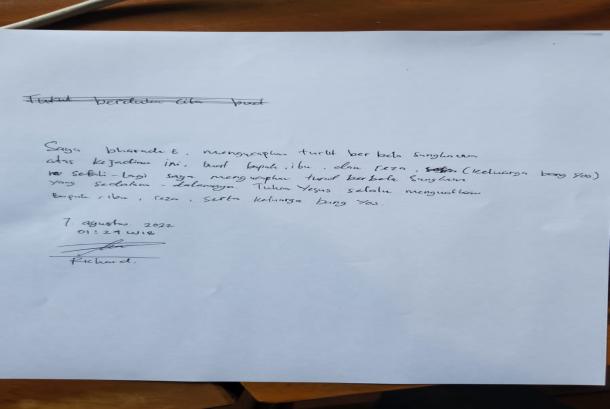 Turut berduka cita buat
Saya bharada E. mengucapkan turut ber bela sungkawa
atas kejadian ini. buat bapak, ibu, dan reza, (keluarga bang yos)
sekali-lagi saya mengucapkan turut berbela sungkawa
yang sedalam-dalamnya Tuhan Yesus selalu menguatkan
Bapak, ibu, reza, serta keluarga bang Yos.
7 agustus 2022
01:24 WIB
Richard.